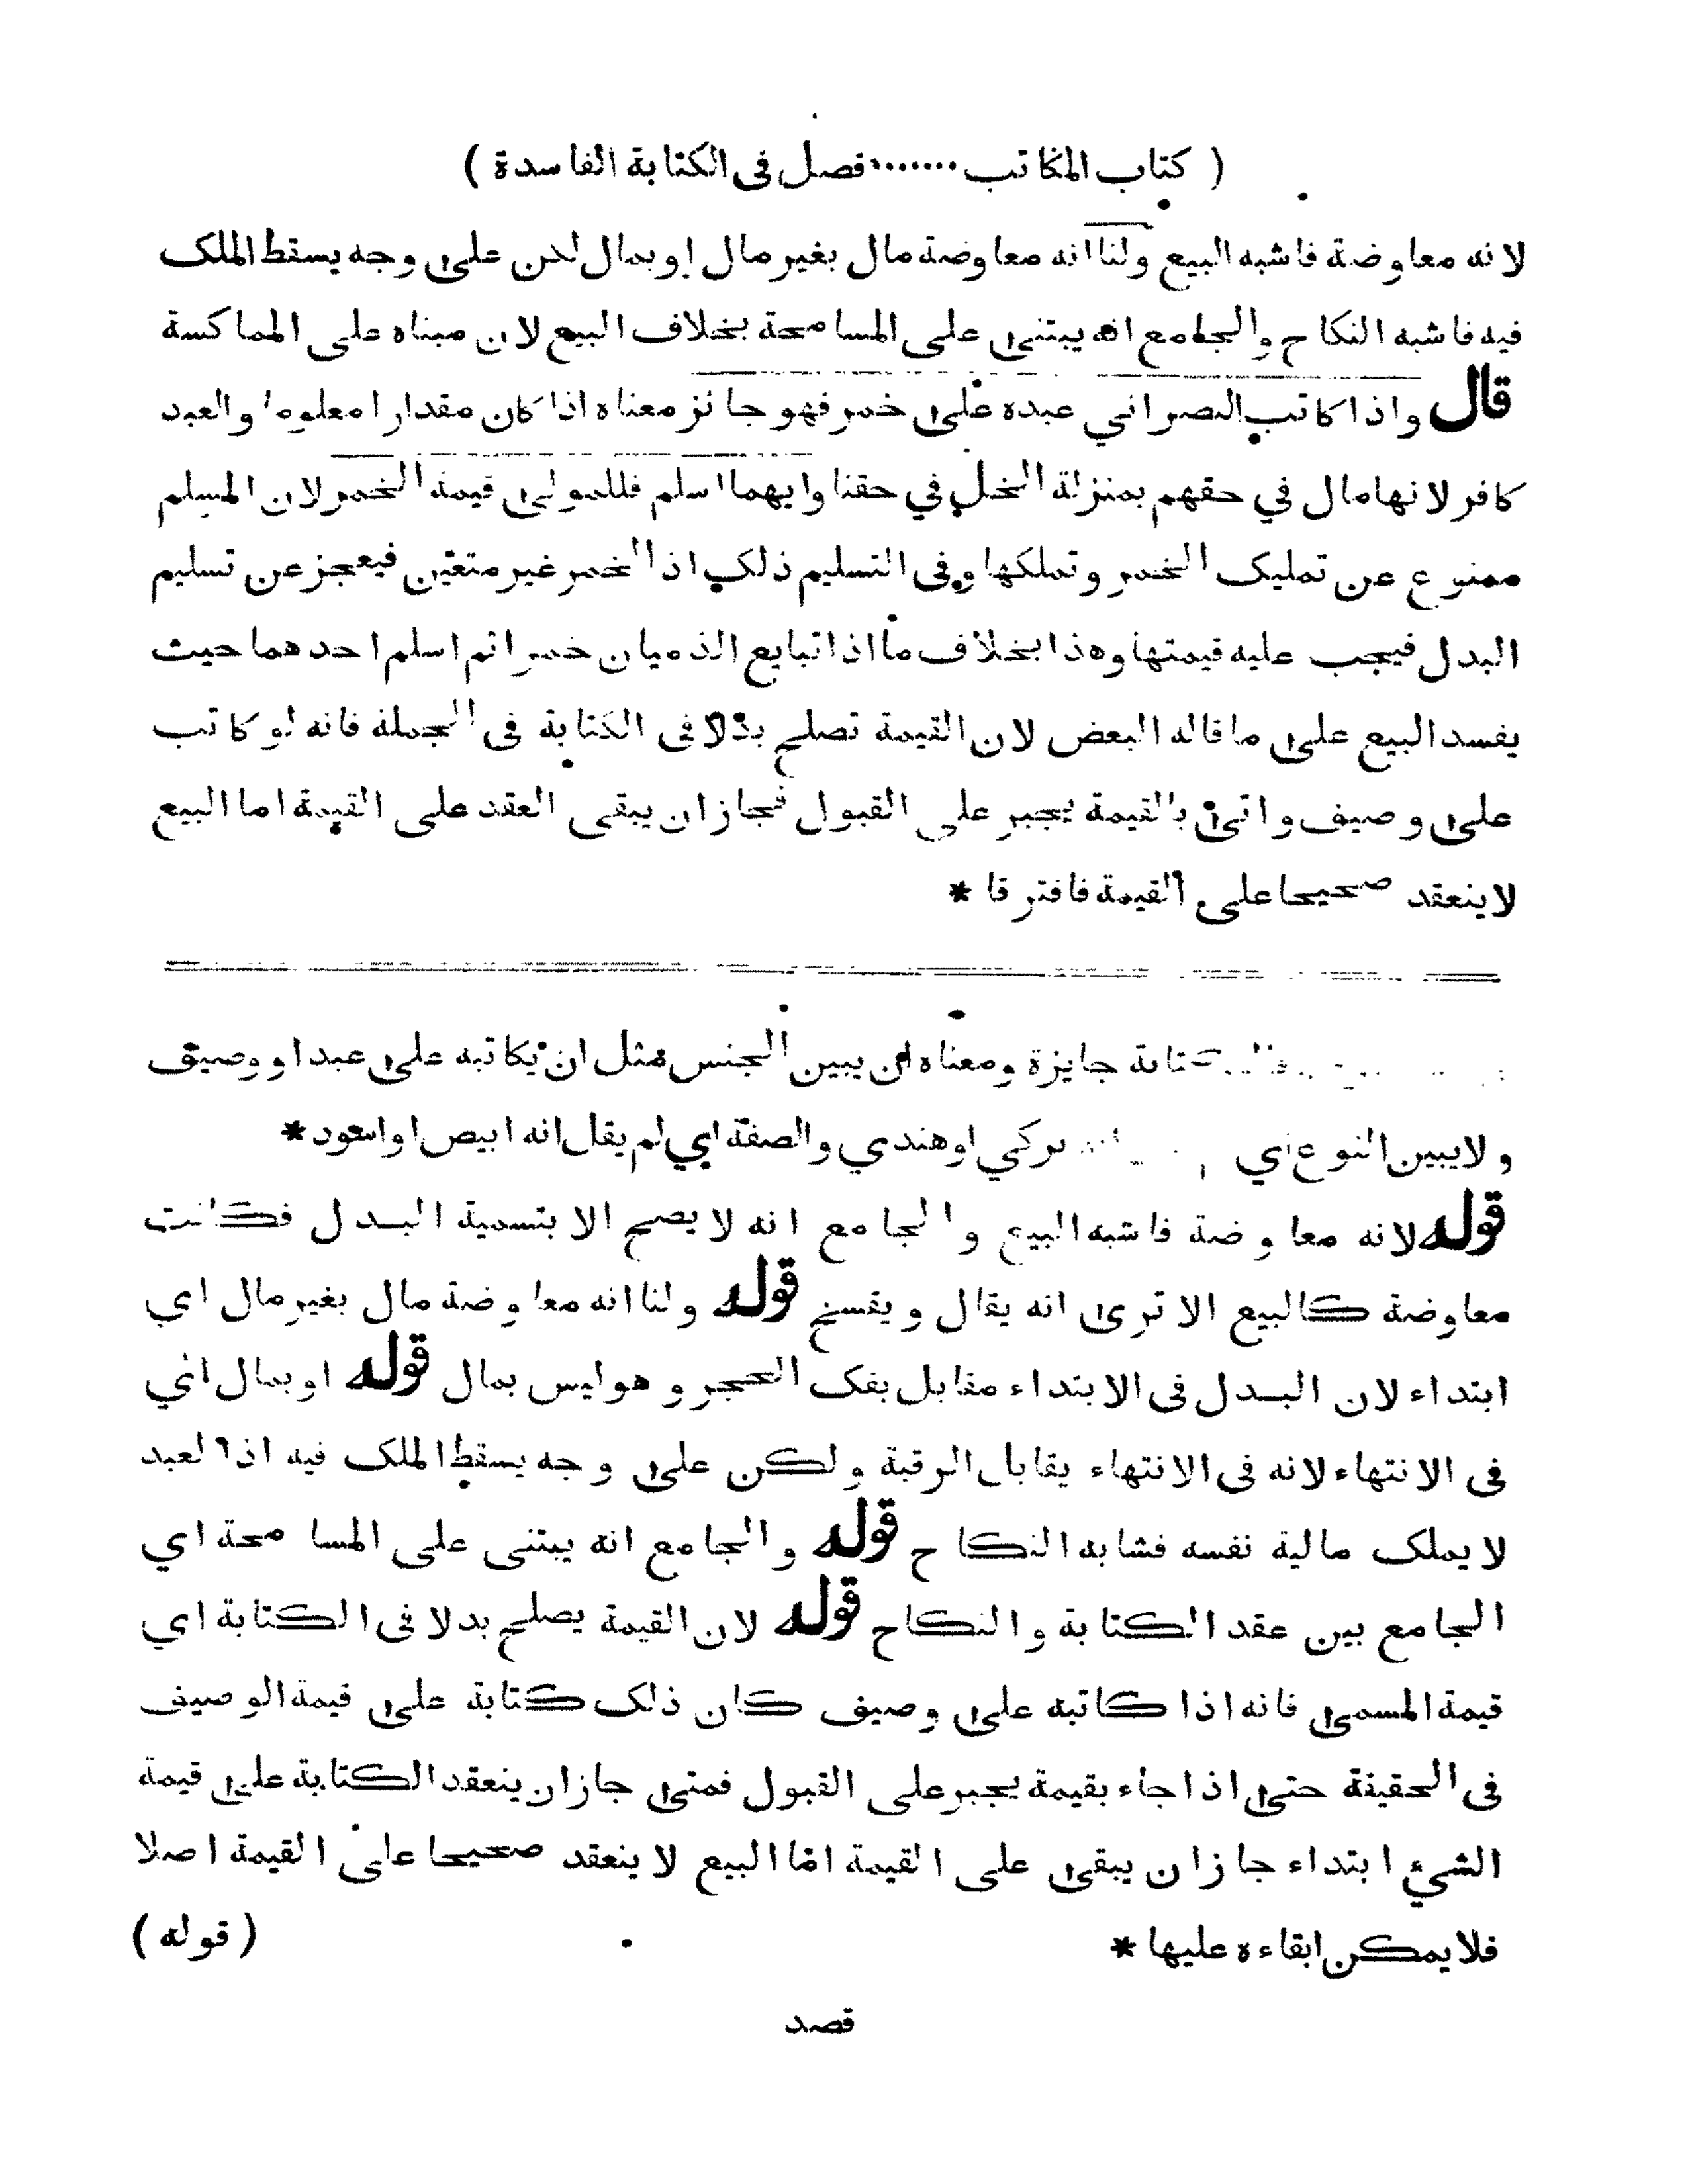 ( كتاب المكاتب ........ فصل فى الكتابة الفاسدة )
لانه معاوضة فاشبه البيع ولنا انه معاوضة مال بغير مال او بمال لكن على وجه يسقط الملك
فيه فاشبه النكاح والجامع انه يبتنى على المسامحة بخلاف البيع لان مبناه على المماكسة
قال واذا كاتب النصراني عبده على خمر فهو جائز معناه اذا كان مقدارا معلوما والعبد
كافر لانها مال في حقهم بمنزلة الخل في حقنا وايهما اسلم فللمولى قيمة الخمر لان المسلم
ممنوع عن تمليك الخمر وتملكها وفى التسليم ذلك اذ الخمر غير متعين فيعجز عن تسليم
البدل فيجب عليه قيمتها وهذا بخلاف ما اذا تبايع الذميان خمرا ثم اسلم احدهما حيث
يفسد البيع على ما قاله البعض لان القيمة تصلح بدلا فى الكتابة فى الجملة فانه لو كاتب
على وصيف واتى بالقيمة يجبر على القبول فجاز ان يبقى العقد على القيمة اما البيع
لا ينعقد صحيحا على القيمة فافترقا *
جايزة ومعناه ان يبين الجنس مثل ان يكاتبه على عبد او وصيف
ولا يبين النوع اي تركي او هندي والصفة اي لم يقل انه ابيض او اسود *
قوله لانه معاوضة فاشبه البيع والجامع انه لا يصح الا بتسمية البدل فكانت
معاوضة كالبيع الا ترى انه يقال ويفسخ قوله ولنا انه معاوضة مال بغير مال اي
ابتداء لان البدل فى الابتداء مقابل بفك الحجر وهو ليس بمال قوله او بمال اي
فى الانتهاء لانه فى الانتهاء يقابل الرقبة ولكن على وجه يسقط الملك فيه اذ العبد
لا يملك مالية نفسه فشابه النكاح قوله والجامع انه يبتنى على المسامحة اي
الجامع بين عقد الكتابة والنكاح قوله لان القيمة يصلح بدلا فى الكتابة اي
قيمة المسمى فانه اذا كاتبه على وصيف كان ذلك كتابة على قيمة الوصيف
فى الحقيقة حتى اذا جاء بقيمة يجبر على القبول فمتى جاز ان ينعقد الكتابة على قيمة
الشيء ابتداء جاز ان يبقى على القيمة اما البيع لا ينعقد صحيحا على القيمة اصلا
فلا يمكن ابقاءه عليها *
( قوله )
قصد